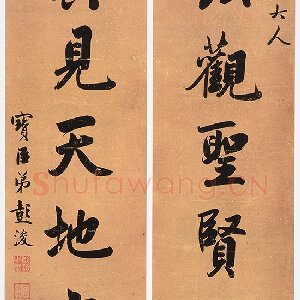 大人
觀聖賢
見天地
寶臣弟彭浚
Shufawang.CN